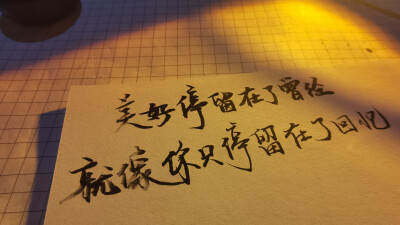 美好停留在了曾经
就像你只停留在了回忆